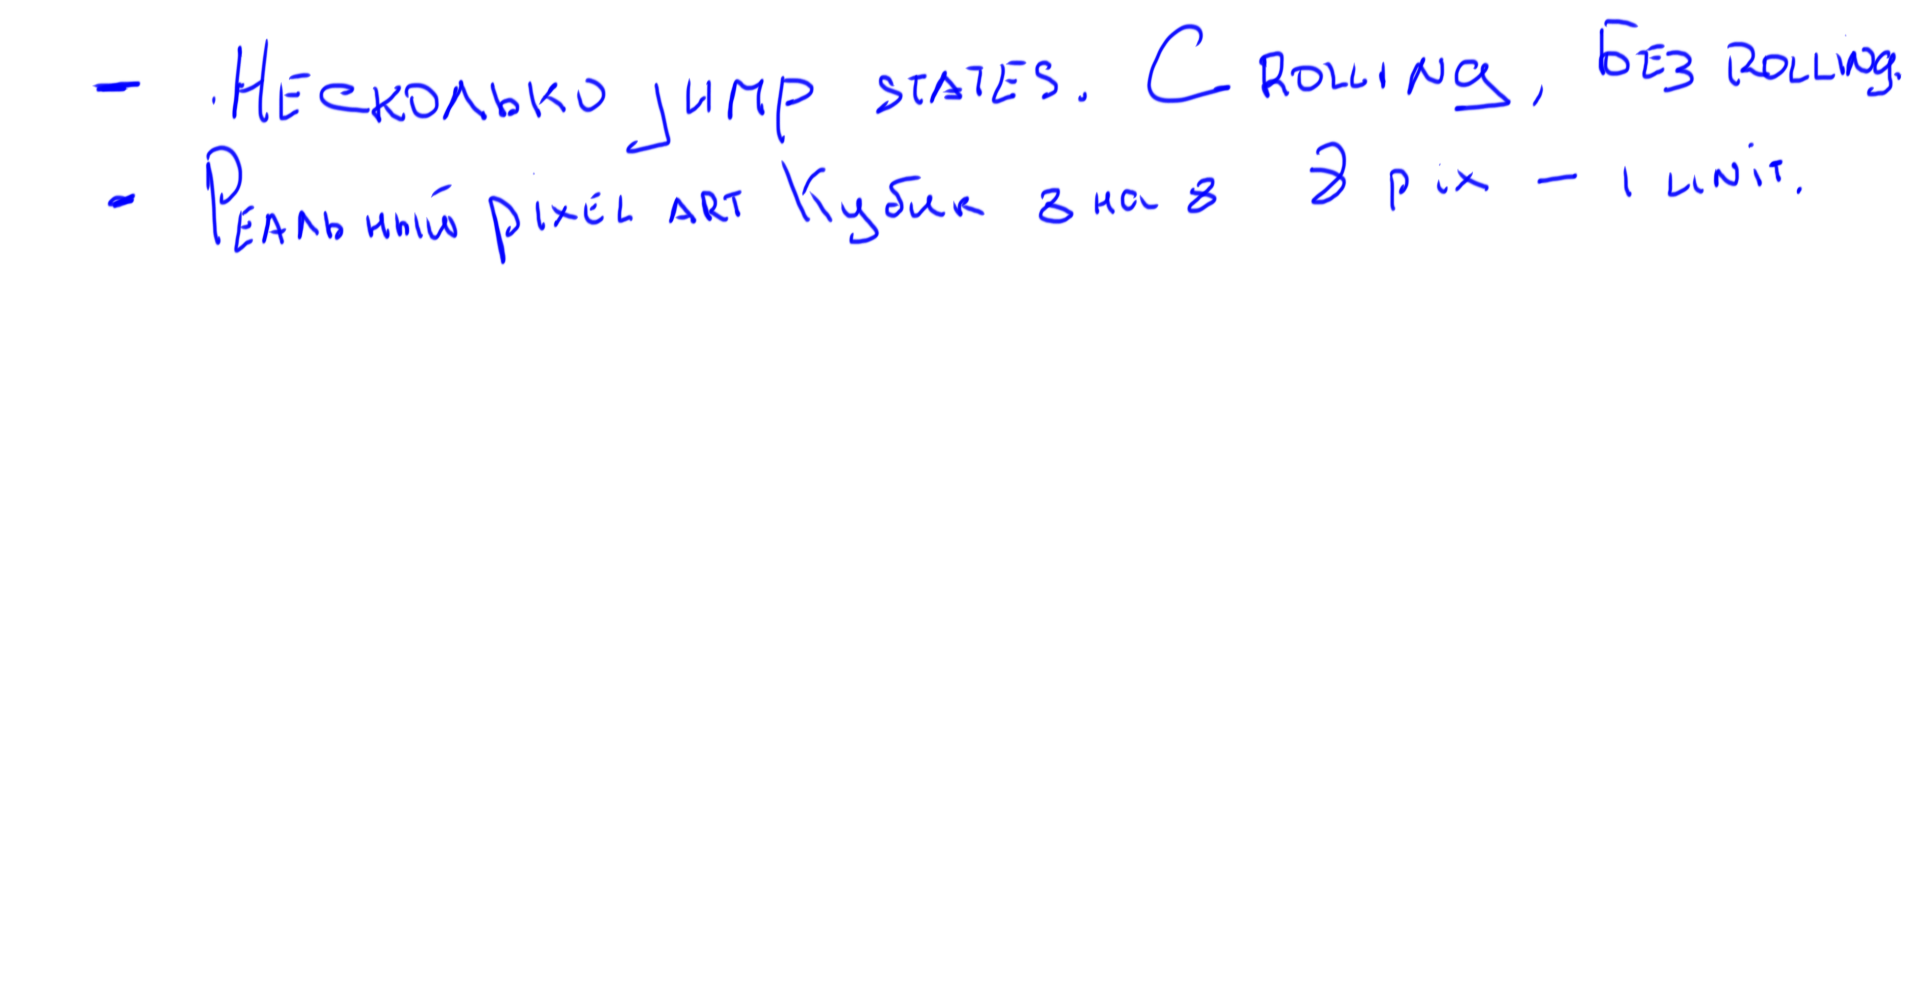 - Несколько jump states. С rolling, без rolling.
- Реальный pixel art Кубик 8 на 8 8 pix - 1 unit.